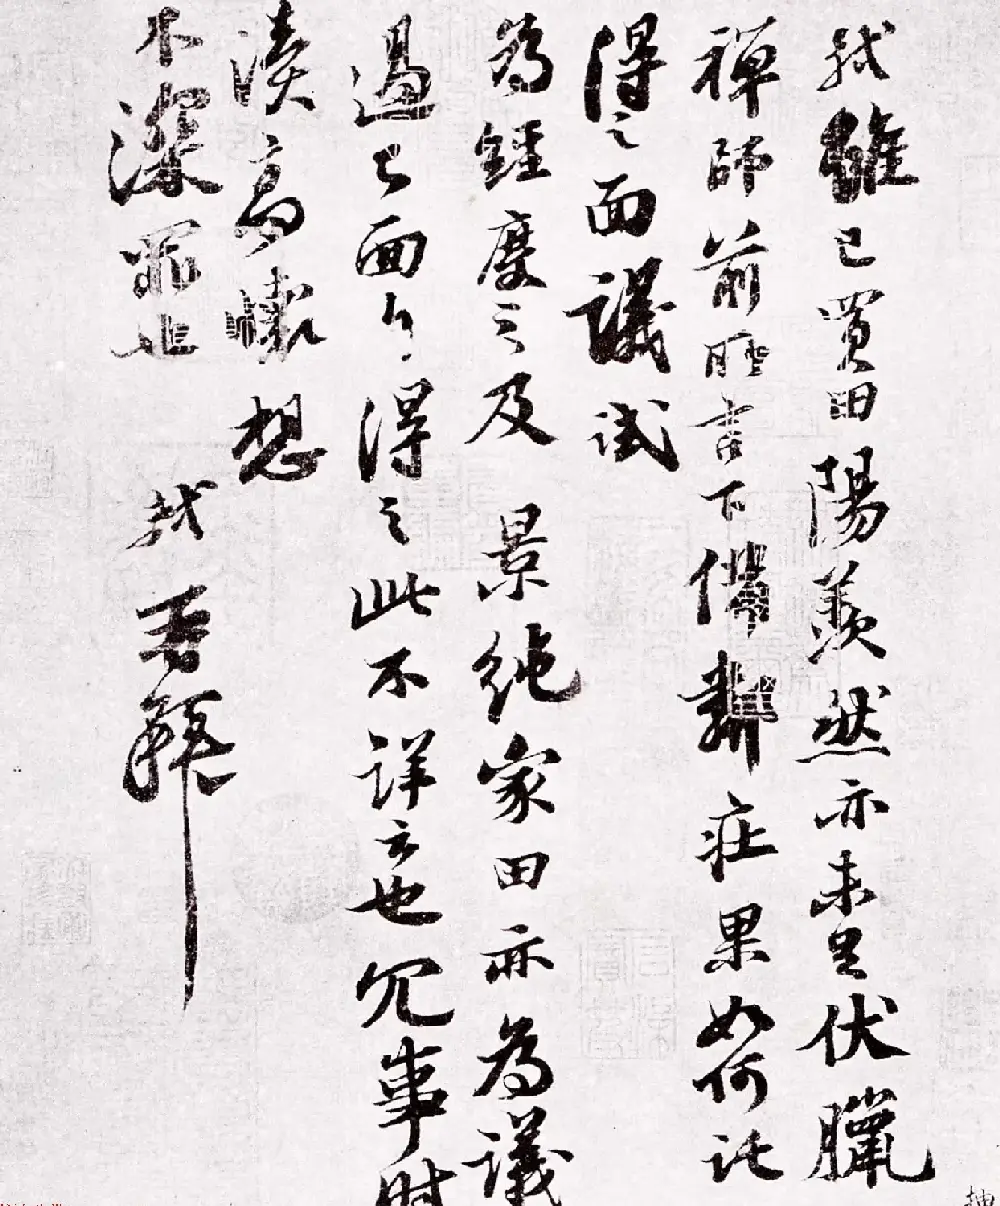 軾雖已買田陽羨然亦未足伏臘
禪師前所言下備鄰莊果如何託
得之面議試
為經度之及景純家田亦為議
過已面白得之此不詳云也冗事時
瀆高懷想
不深罪也軾再拜